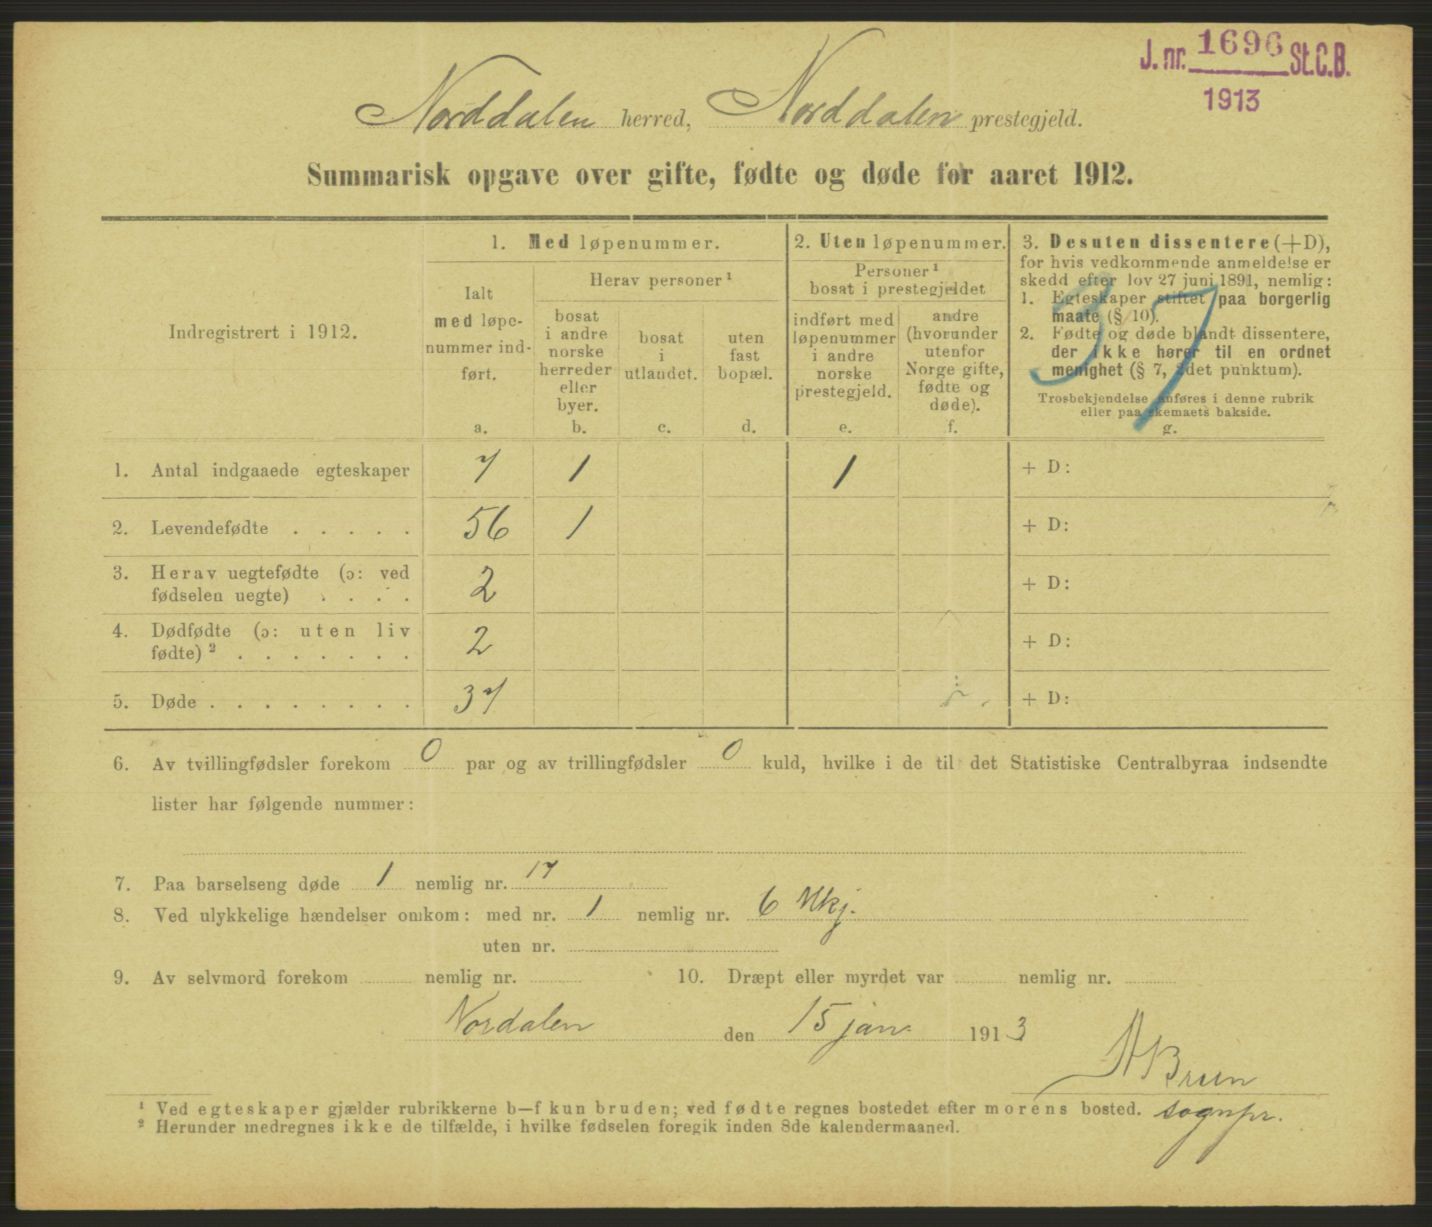 J. nr. 1696 St.C.B.
1913
Norddalen herred, Norddalen prestegjeld.
Summarisk opgave over gifte, fødte og døde for aaret 1912.
Indregistrert i 1912.
1. Med løpenummer.
Ialt
med løpe-
nummer ind-
ført.
a.
Herav personer ¹
bosat
i andre
norske
herreder
eller
byer.
b.
bosat
i
utlandet.
c.
uten
fast
bopæl.
d.
2. Uten løpenummer.
Personer ¹
bosat i prestegjeldet
indført med
løpenummer
i andre
norske
prestegjeld.
e.
andre
(hvorunder
utenfor
Norge gifte,
fødte og
døde).
f.
3. Desuten dissentere (+D),
for hvis vedkommende anmeldelse er
skedd efter lov 27 juni 1891, nemlig:
1. Egteskaper stiftet paa borgerlig
maate (§ 10).
2. Fødte og døde blandt dissentere,
der ikke hører til en ordnet
menighet (§ 7, 2det punktum).
Trosbekjendelse anføres i denne rubrik
eller paa skemaets bakside.
g.
37
1. Antal indgaaede egteskaper 7 1 1 + D:
2. Levendefødte . . . . . 56 1 + D:
3. Herav uegtefødte (ɔ: ved
fødselen uegte) . . . . 2 + D:
4. Dødfødte (ɔ: uten liv
fødte) ² . . . . . . . 2 + D:
5. Døde . . . . . . . . 37 + D:
6. Av tvillingfødsler forekom 0 par og av trillingfødsler 0 kuld, hvilke i de til det Statistiske Centralbyraa indsendte
lister har følgende nummer:
7. Paa barselseng døde 1 nemlig nr. 17
8. Ved ulykkelige hændelser omkom: med nr. 1 nemlig nr. 6 Mkj.
uten nr.
9. Av selvmord forekom nemlig nr. 10. Dræpt eller myrdet var nemlig nr.
Nordalen den 15 jan. 1913
A Bruun
sognpr.
¹ Ved egteskaper gjælder rubrikkerne b—f kun bruden; ved fødte regnes bostedet efter morens bosted.
² Herunder medregnes ikke de tilfælde, i hvilke fødselen foregik inden 8de kalendermaaned.